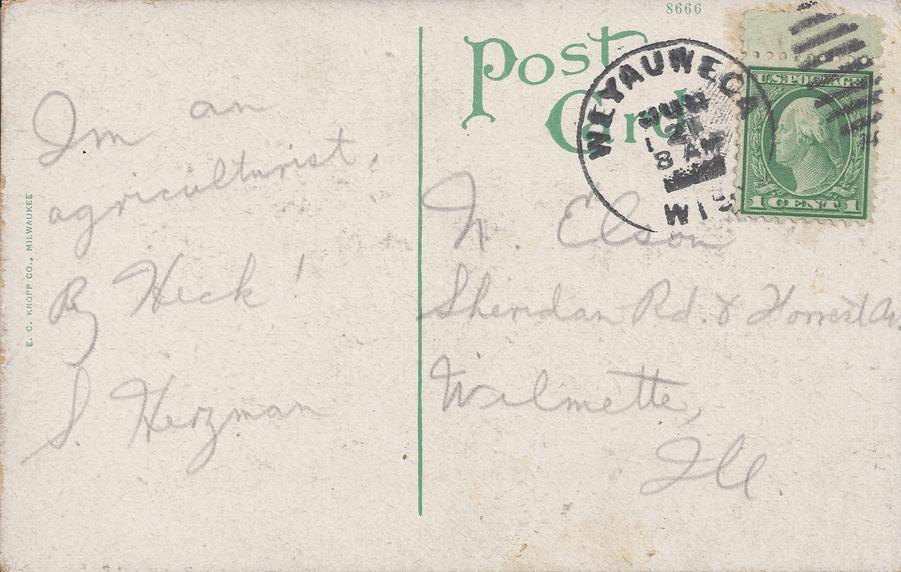 8666
Post
Card
WEYAUWEGA
JUN
21
8 AM
WIS
U.S. POSTAGE
1 CENT 1
Im an
agriculturist,
By Heck!
S. Herzman
N. Elson
Sheridan Rd. & Forrest Av
Wilmette,
Ill
E. C. KROPP CO., MILWAUKEE